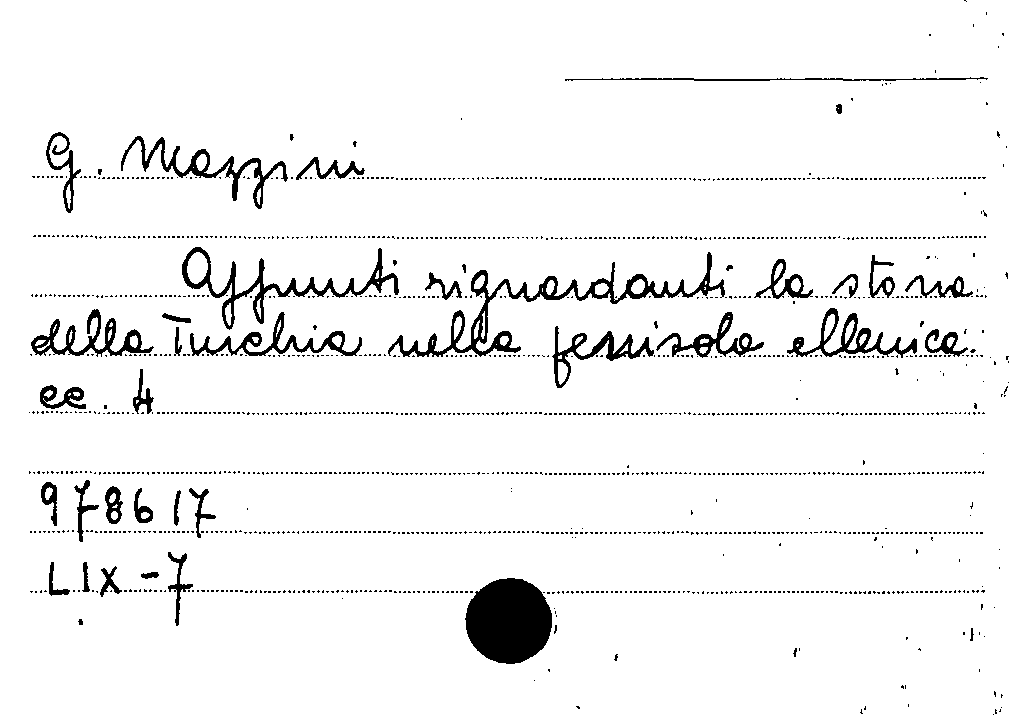 G. Mazzini
Appunti riguardanti la storia
della Turchia nella penisola ellenica.
cc. 4
978617
LIX-7